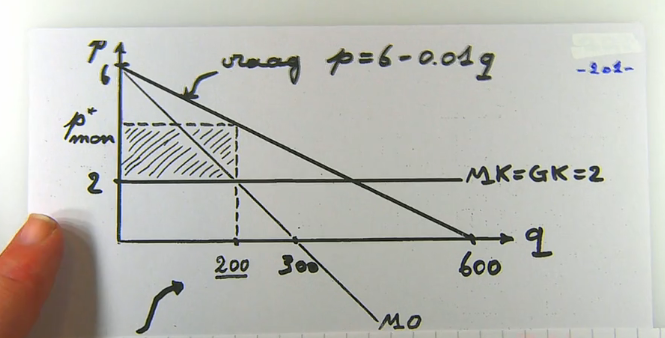 p
6
vraag p=6-0.01q
-201-
p*mon
2
MK=GK=2
200
300
600
q
MO